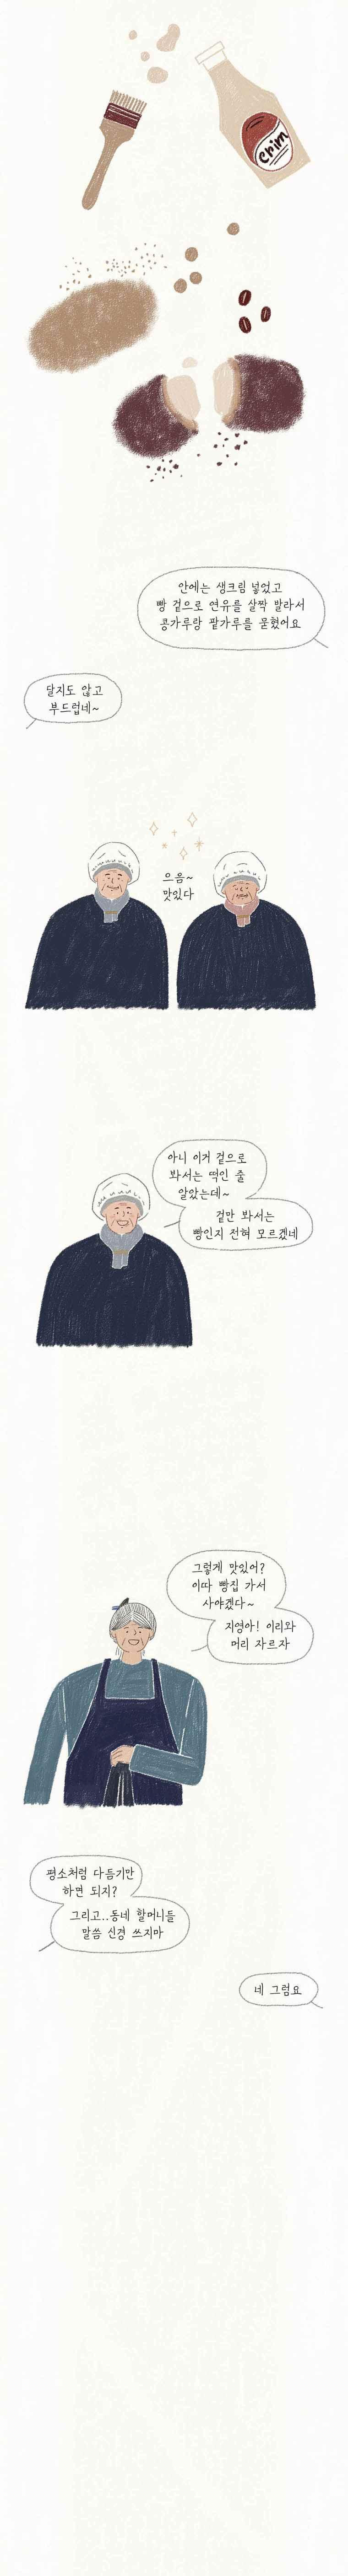 crim
안에는 생크림 넣었고
빵 겉으로 연유를 살짝 발라서
콩가루랑 팥가루를 묻혔어요
달지도 않고
부드럽네~
으음~
맛있다
아니 이거 겉으로
봐서는 떡인 줄
알았는데~
겉만 봐서는
빵인지 전혀 모르겠네
그렇게 맛있어?
이따 빵집 가서
사야겠다~
지영아! 이리와
머리 자르자
평소처럼 다듬기만
하면 되지?
그리고..동네 할머니들
말씀 신경 쓰지마
네 그럼요